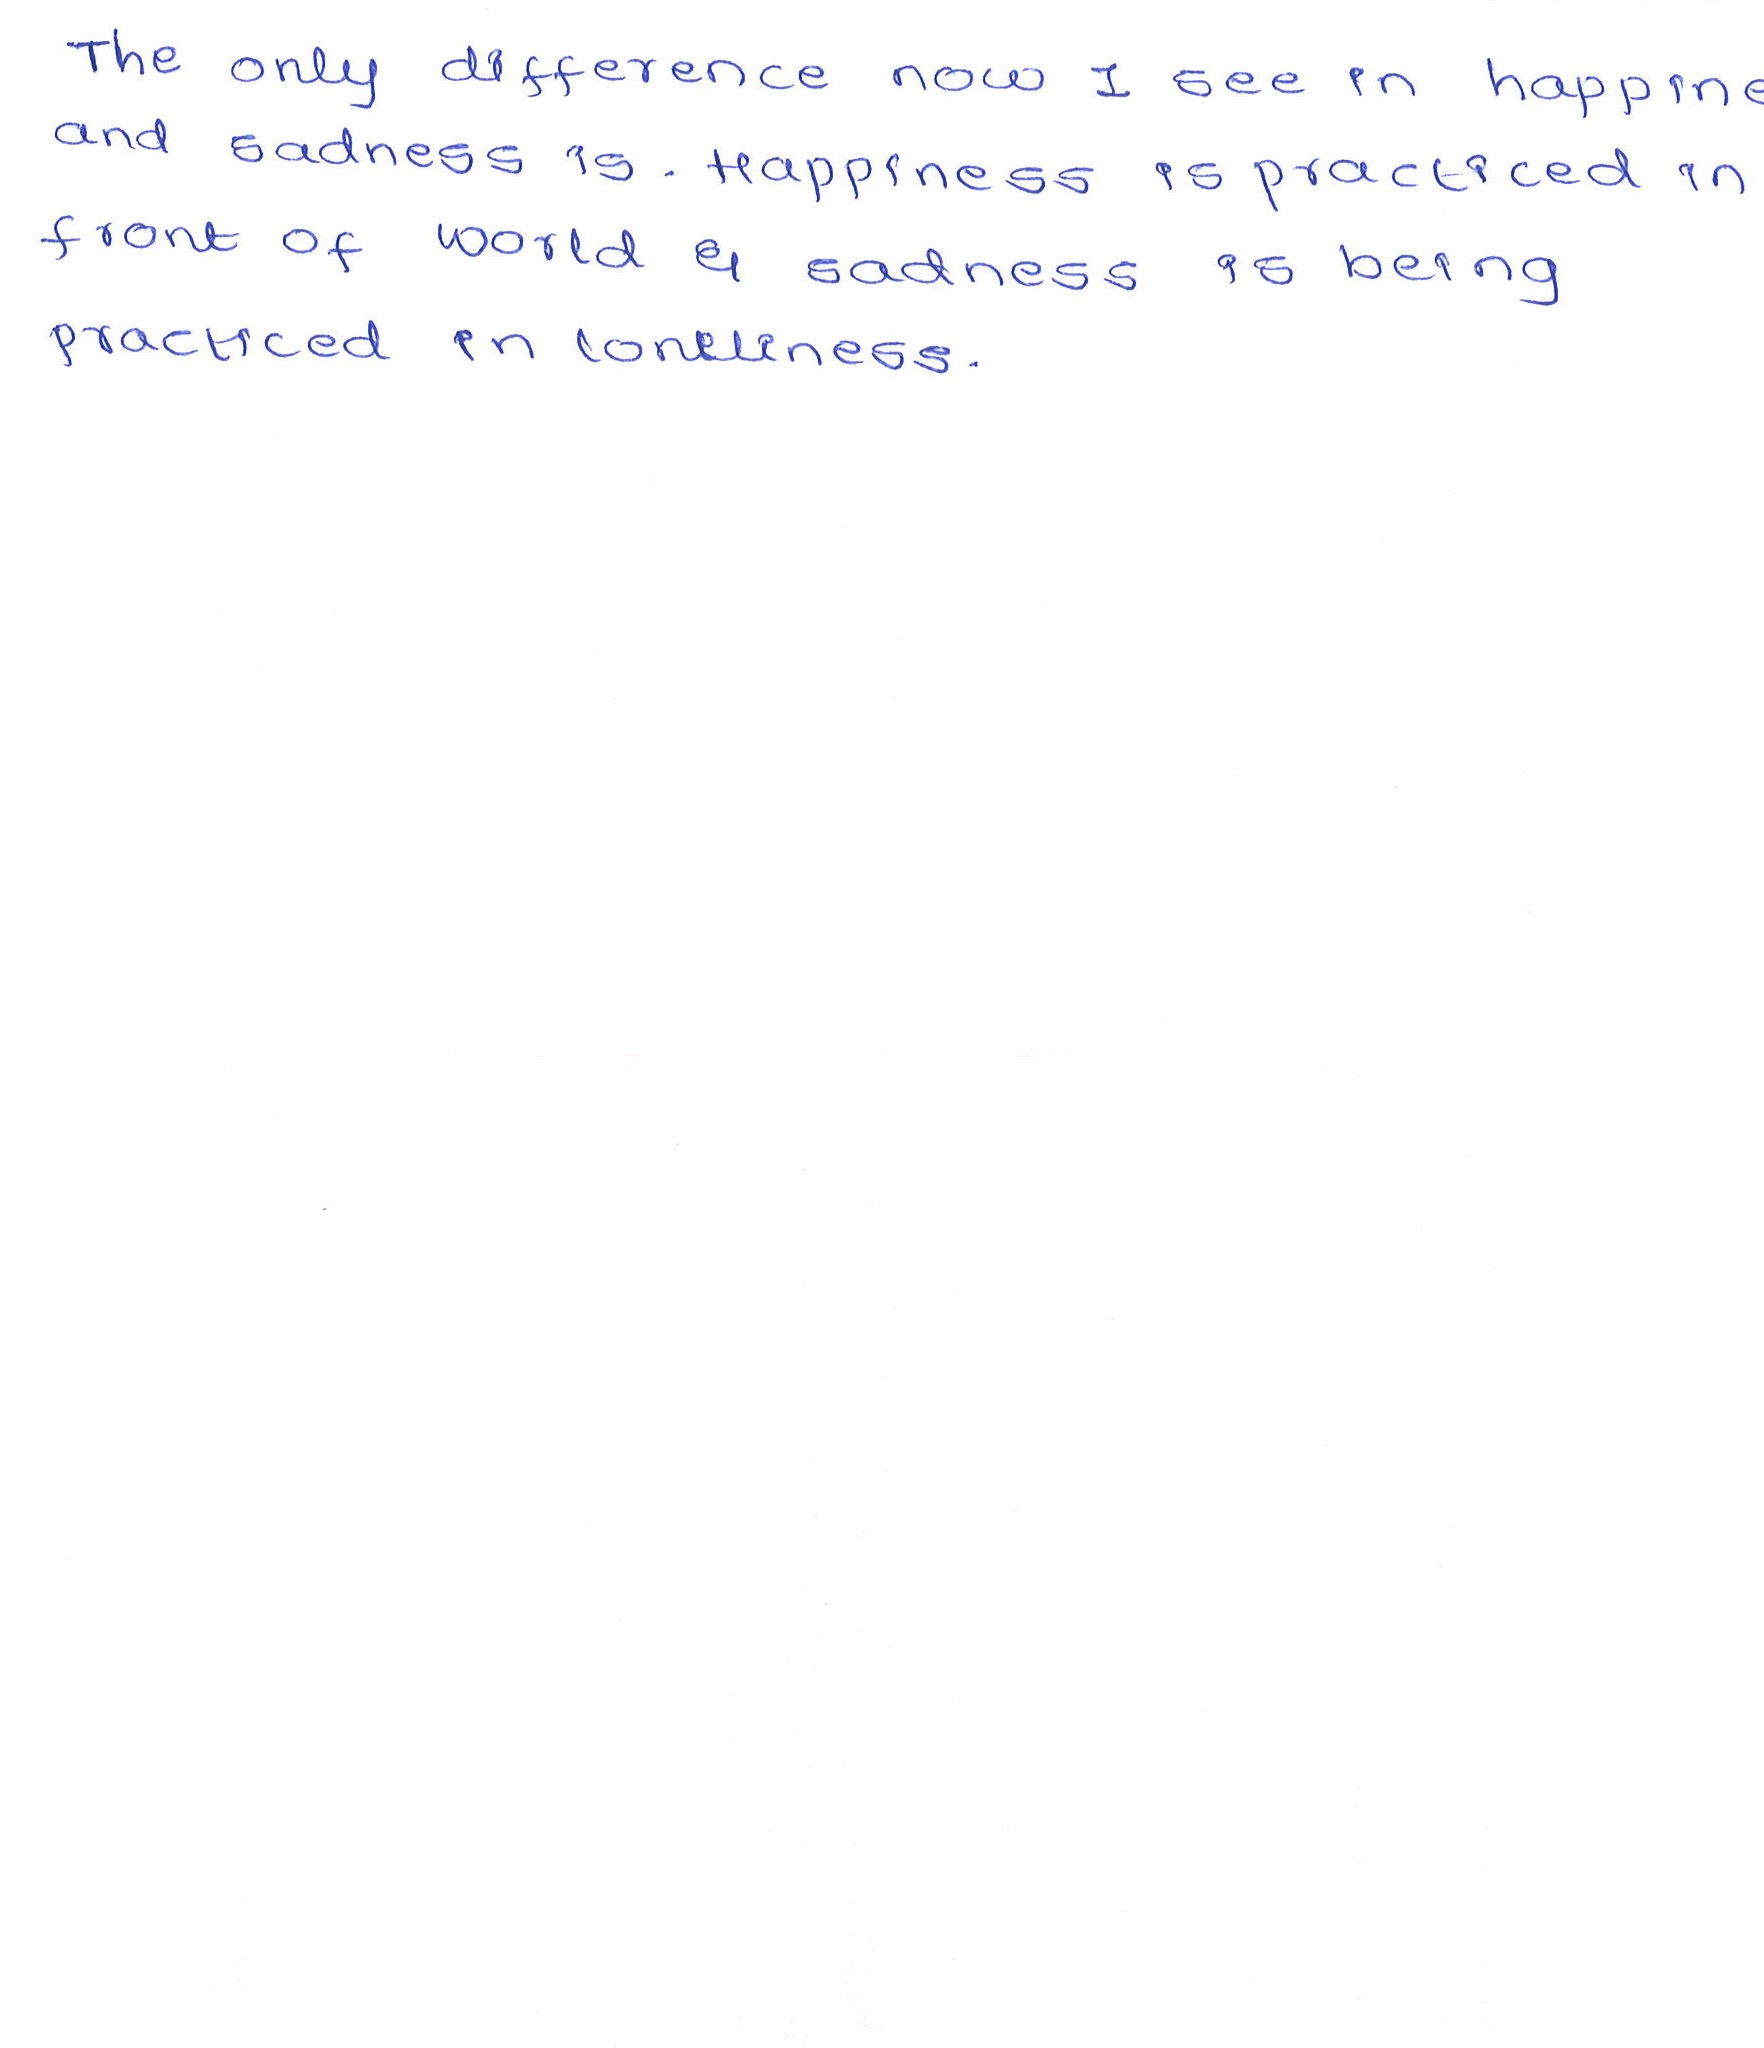 The only difference now I see in happine
and sadness is. Happiness is practiced in
front of world & sadness is being
practiced in loneliness.